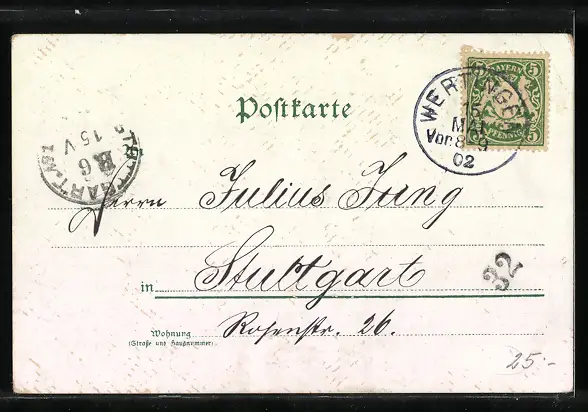 BAYERN 5
5 PFENNIG 5
WERTINGEN
15
MAI
Vor. 8-9
02
Postkarte
STUTTGART No1
B6
15 V
Herrn Julius Jung
in Stuttgart
32
Rosenstr. 26.
Wohnung
(Straße und Hausnummer)
25.-